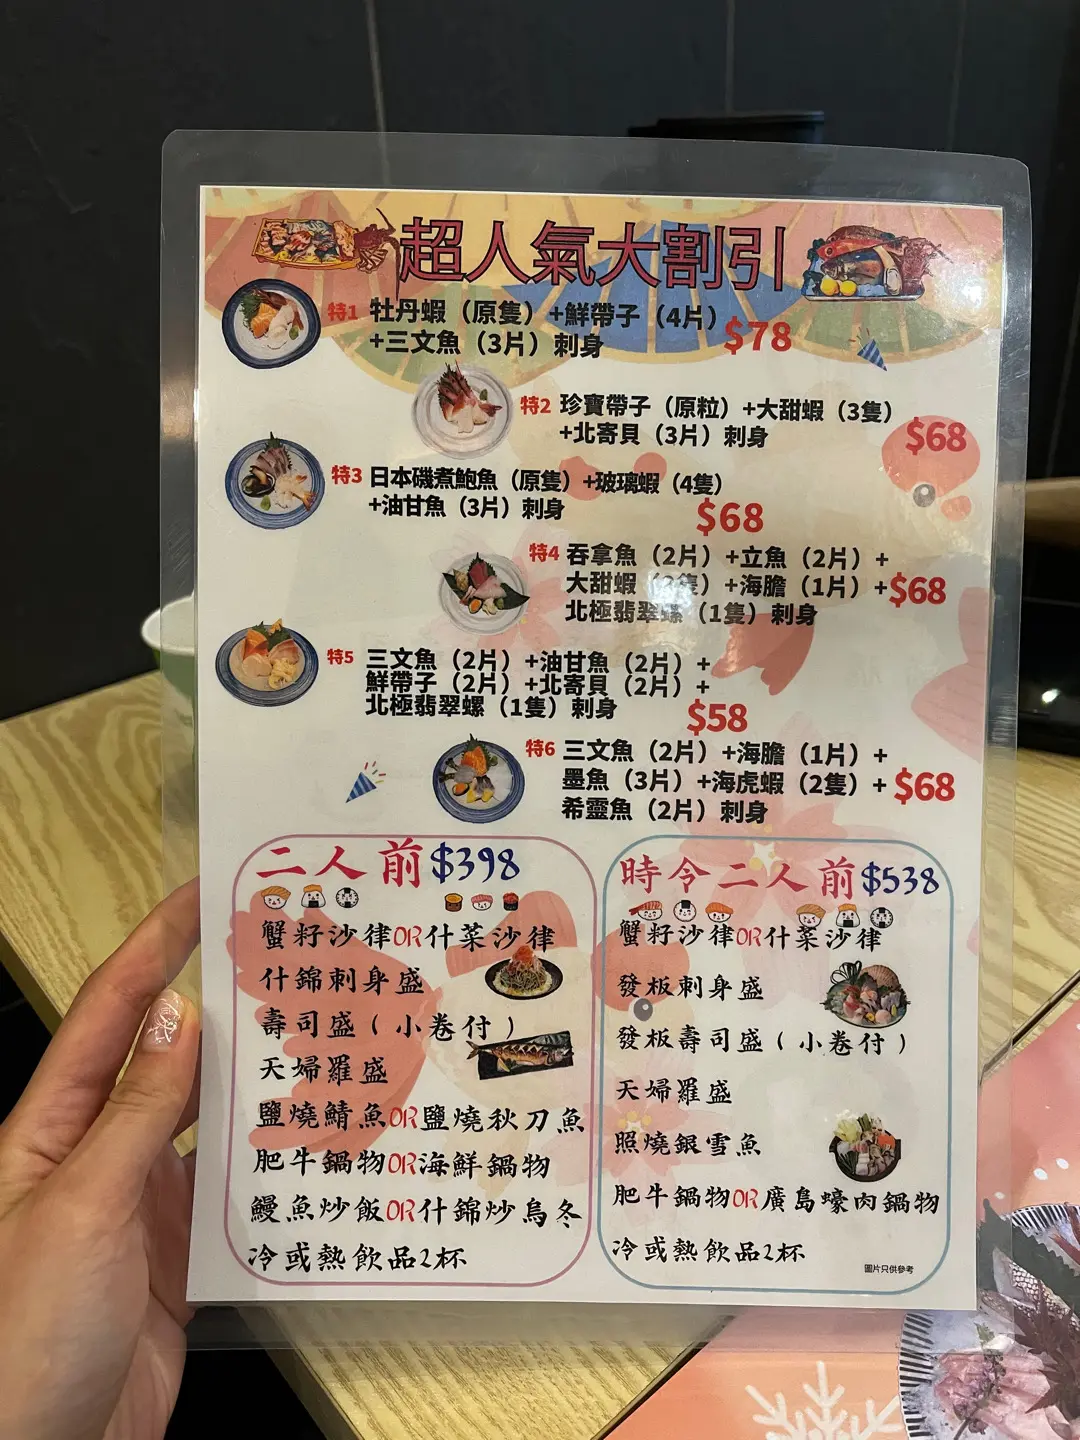 超人氣大割引
特1 牡丹蝦（原隻）+鮮帶子（4片）
+三文魚（3片）刺身
$78
特2 珍寶帶子（原粒）+大甜蝦（3隻）
+北寄貝（3片）刺身
$68
特3 日本磯煮鮑魚（原隻）+玻璃蝦（4隻）
+油甘魚（3片）刺身
$68
特4 吞拿魚（2片）+立魚（2片）+
大甜蝦（2隻）+海膽（1片）+
北極翡翠螺（1隻）刺身
$68
特5 三文魚（2片）+油甘魚（2片）+
鮮帶子（2片）+北寄貝（2片）+
北極翡翠螺（1隻）刺身
$58
特6 三文魚（2片）+海膽（1片）+
墨魚（3片）+海虎蝦（2隻）+
希靈魚（2片）刺身
$68
二人前$398
蟹籽沙律OR什菜沙律
什錦刺身盛
壽司盛（小卷付）
天婦羅盛
鹽燒鯖魚OR鹽燒秋刀魚
肥牛鍋物OR海鮮鍋物
鰻魚炒飯OR什錦炒烏冬
冷或熱飲品2杯
時令二人前$538
蟹籽沙律OR什菜沙律
發板刺身盛
發板壽司盛（小卷付）
天婦羅盛
照燒銀雪魚
肥牛鍋物OR廣島蠔肉鍋物
冷或熱飲品2杯
圖片只供參考